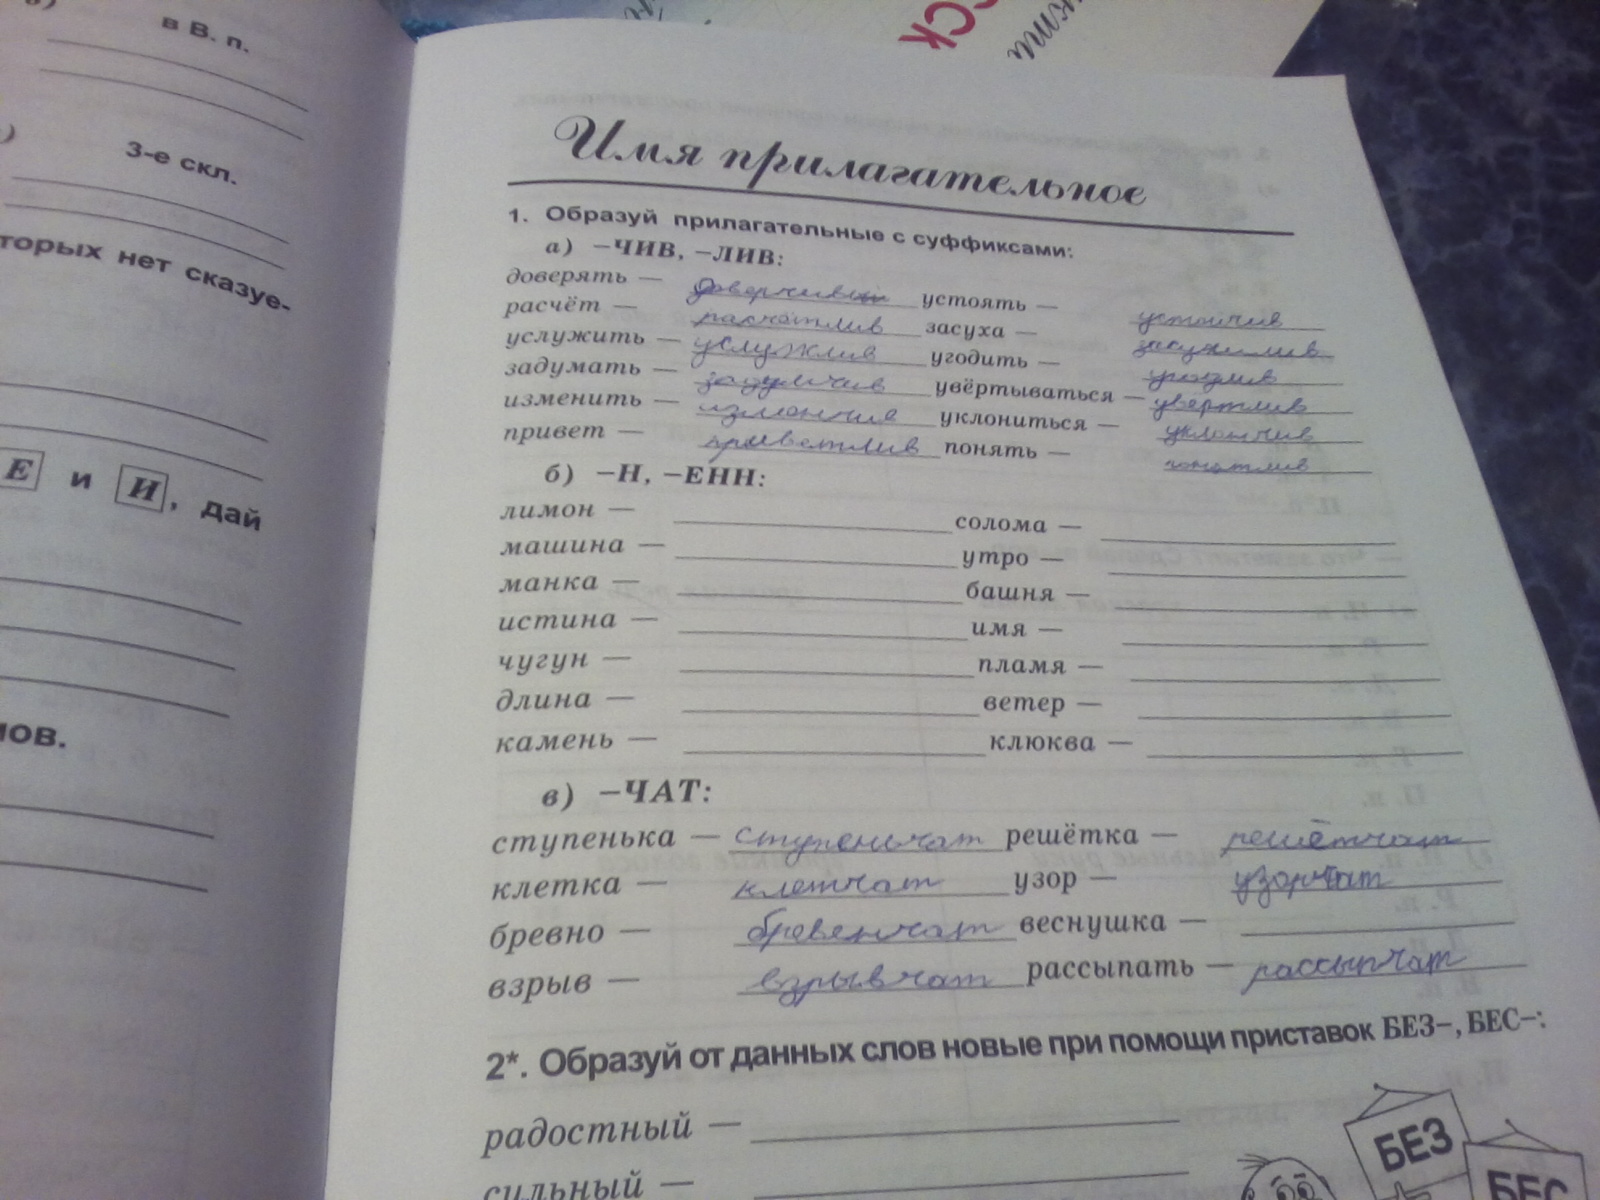 в В. п.
3-е скл.
торых нет сказуе-
Е и И, дай
ов.
Имя прилагательное
1. Образуй прилагательные с суффиксами:
а) –ЧИВ, –ЛИВ:
доверять — доверчив устоять — устойчив
расчёт — расчётлив засуха — засушлив
услужить — услужлив угодить — угодлив
задумать — задумчив увёртываться — увёртлив
изменить — изменчив уклониться — уклончив
привет — приветлив понять — понятлив
б) –Н, –ЕНН:
лимон — солома —
машина — утро —
манка — башня —
истина — имя —
чугун — пламя —
длина — ветер —
камень — клюква —
в) –ЧАТ:
ступенька — ступенчат решётка — решётчат
клетка — клетчат узор — узорчат
бревно — бревенчат веснушка —
взрыв — взрывчат рассыпать — рассыпчат
2*. Образуй от данных слов новые при помощи приставок БЕЗ–, БЕС–:
радостный —
сильный —
БЕЗ
БЕС